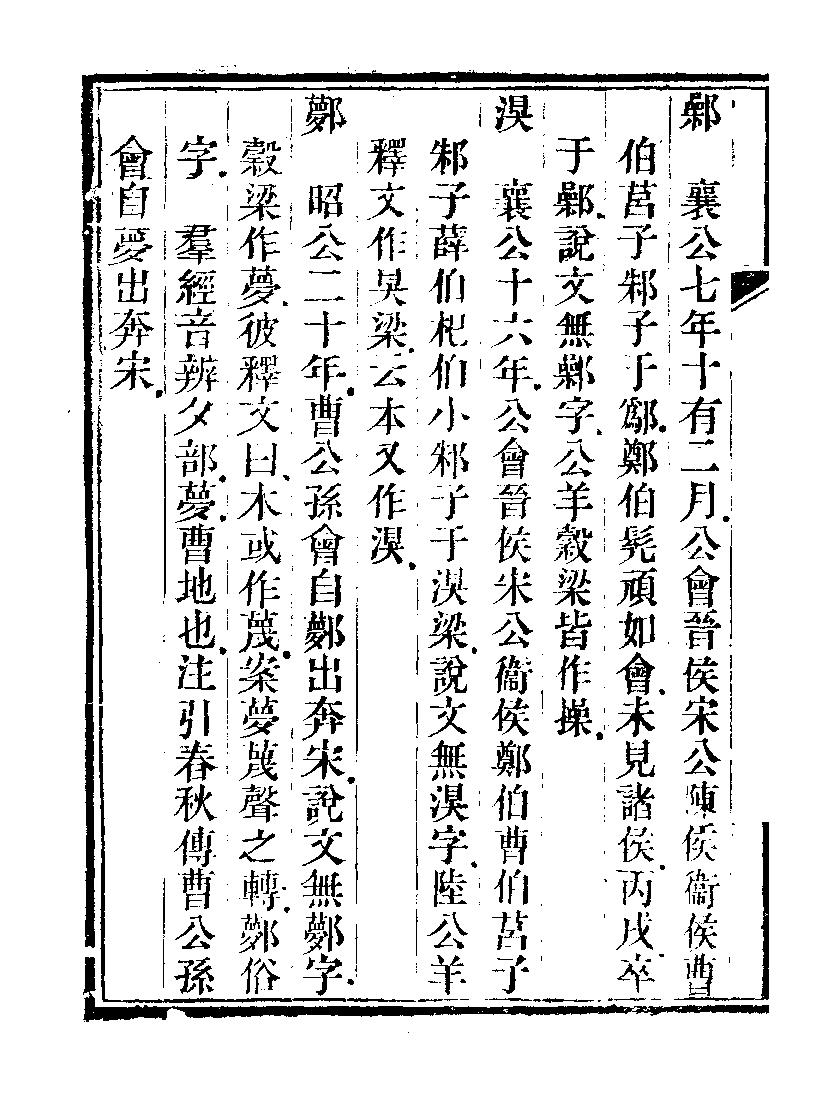 鄵 襄公七年十有二月公會晉侯宋公陳侯衞侯曹
伯莒子邾子于鄬鄭伯髡頑如會未見諸侯丙戌卒
于鄵說文無鄵字公羊穀梁皆作操
湨 襄公十六年公會晉侯宋公衞侯鄭伯曹伯莒子
邾子薛伯杞伯小邾子于湨梁說文無湨字陸公羊
釋文作狊梁云本又作湨
鄸 昭公二十年曹公孫會自鄸出奔宋說文無鄸字
穀梁作夢彼釋文曰本或作蔑案夢蔑聲之轉鄸俗
字 羣經音辨夕部夢曹地也注引春秋傳曹公孫
會自夢出奔宋